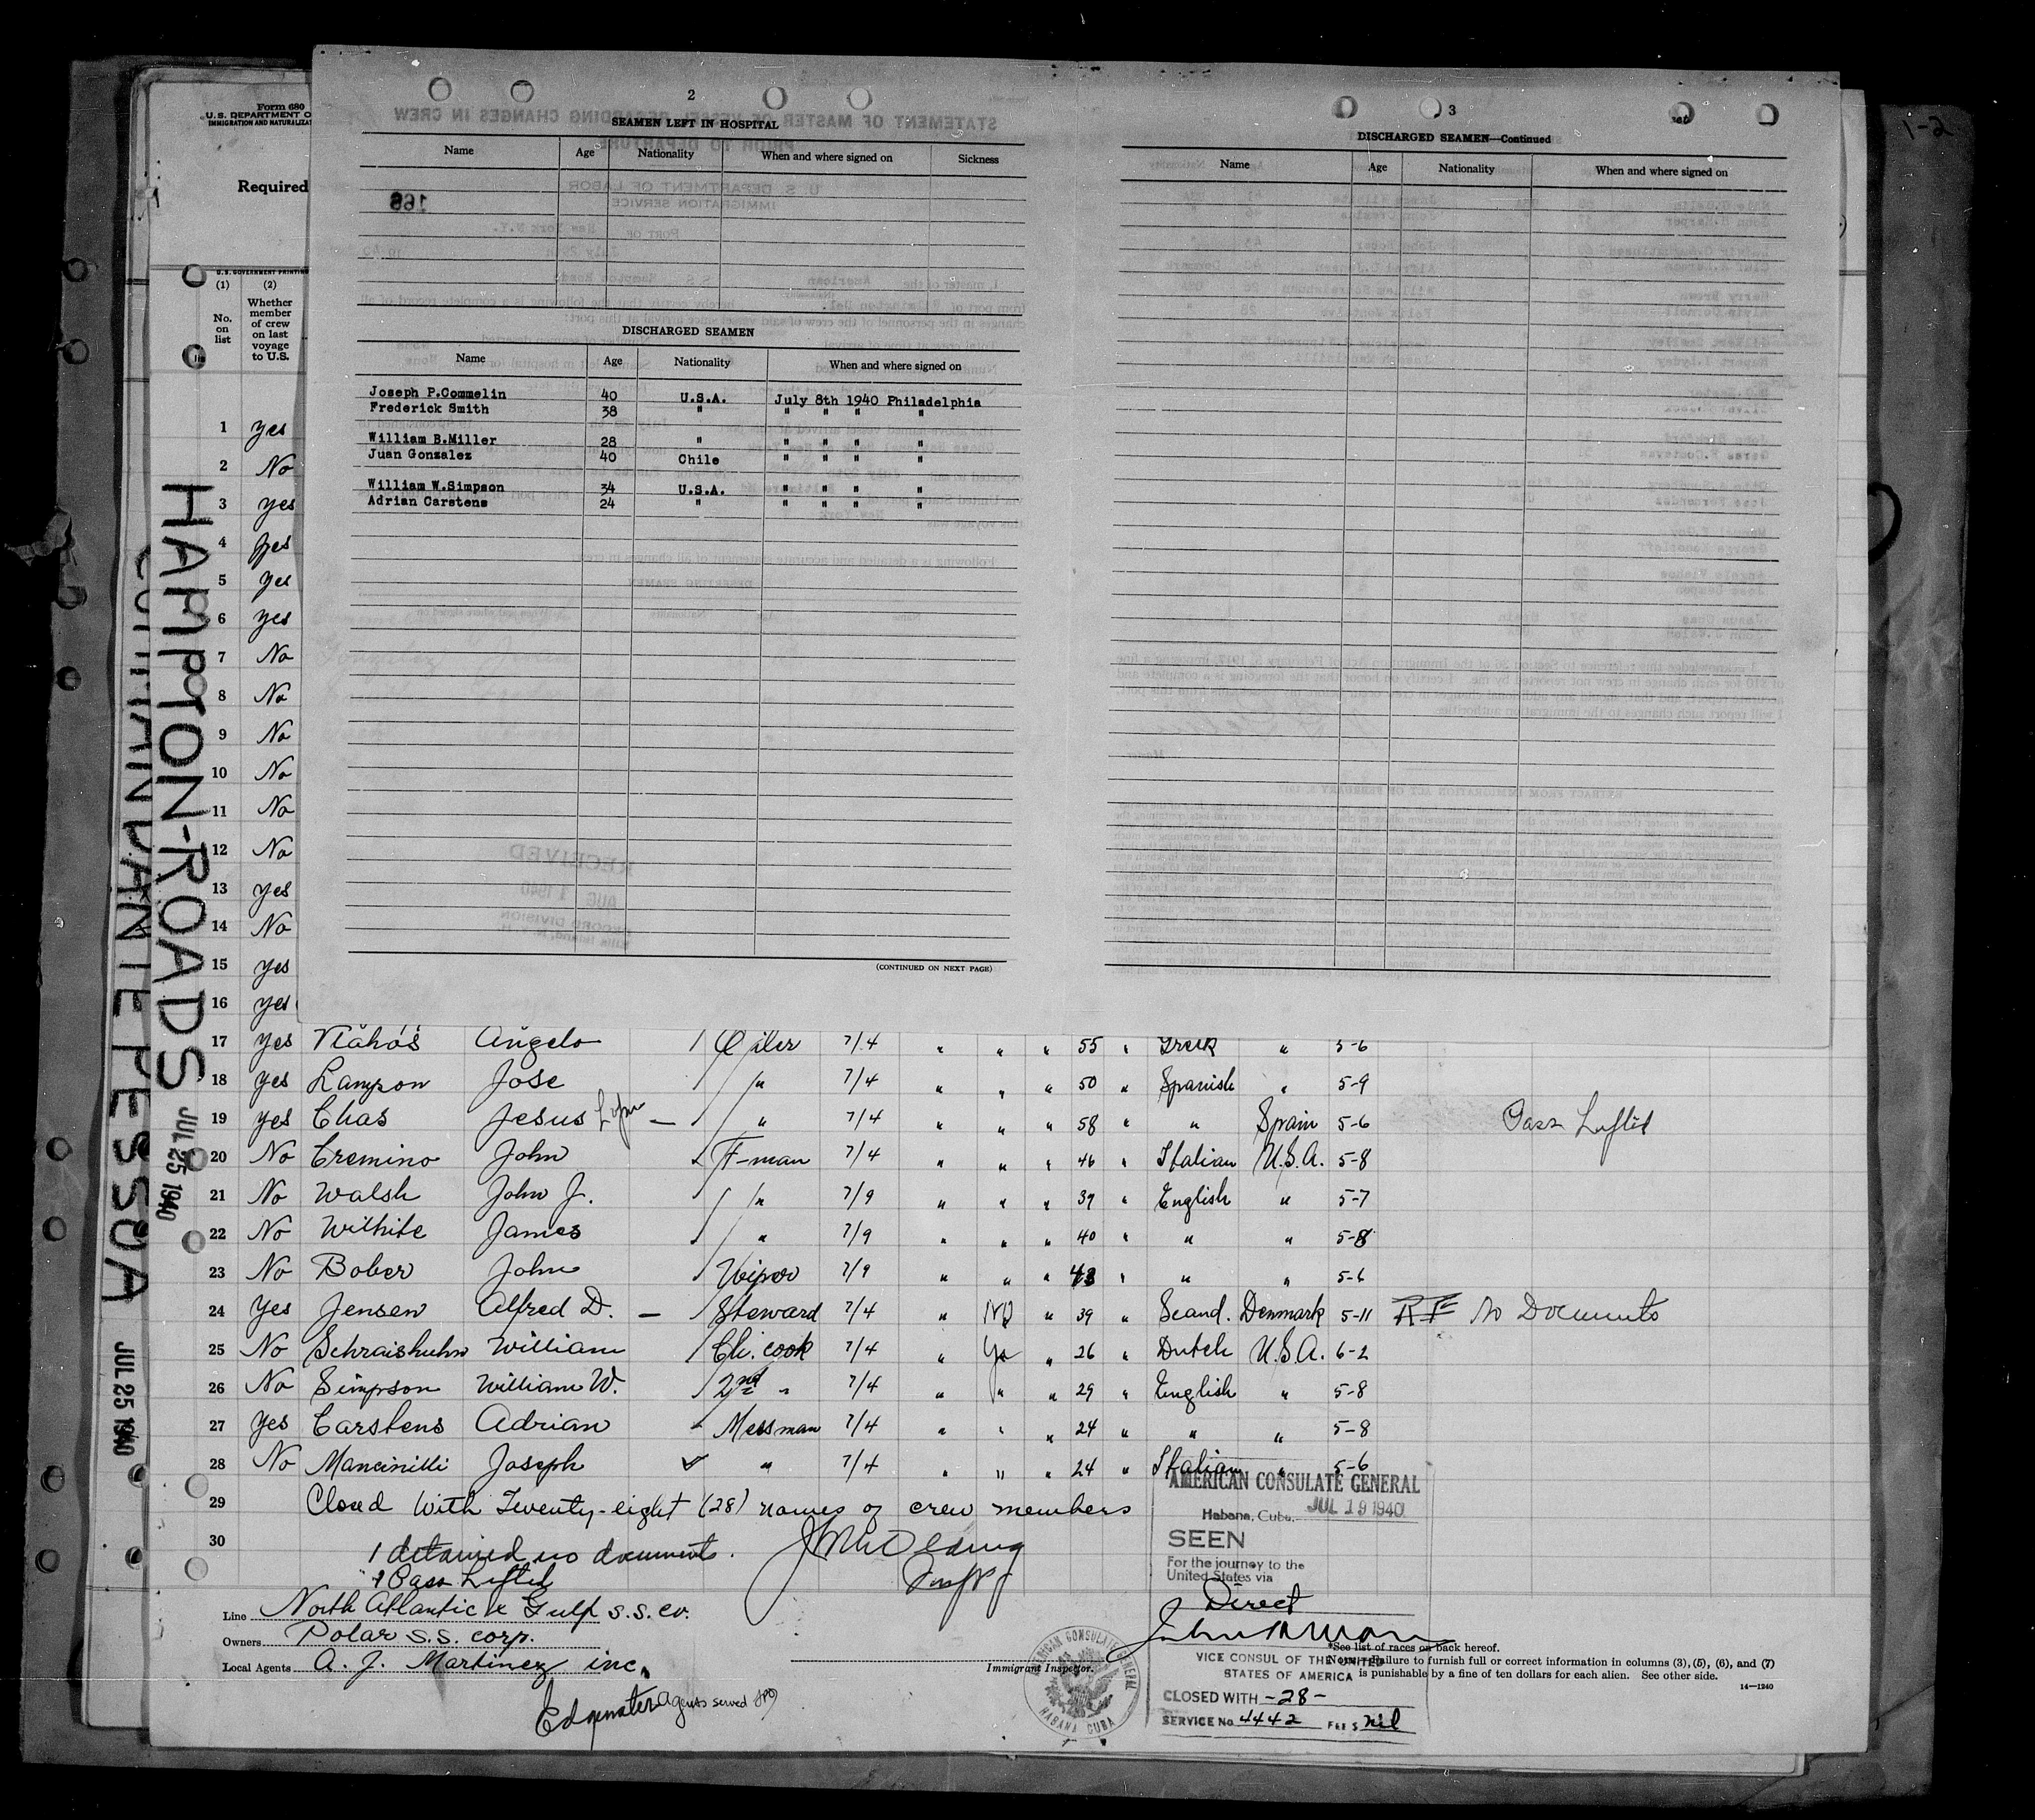 1-2
Form 680
U.S. DEPARTMENT O
IMMIGRATION AND NATURALIZAT
Required
U.S. GOVERNMENT PRINTING
(1) (2)
No. on list
Whether member of crew on last voyage to U.S.
2
SEAMEN LEFT IN HOSPITAL
Name Age Nationality When and where signed on Sickness
DISCHARGED SEAMEN
Name Age Nationality When and where signed on
Joseph P.Commelin 40 U.S.A. July 8th 1940 Philadelphia
Frederick Smith 38 " " " " "
William B.Miller 28 " " " " "
Juan Gonzalez 40 Chile " " " "
William W.Simpson 34 U.S.A. " " " "
Adrian Carstens 24 " " " " "
(CONTINUED ON NEXT PAGE)
3
DISCHARGED SEAMEN—Continued
Name Age Nationality When and where signed on
HAMPTON-ROADS JUL 25 1940
PESSOA JUL 25 1940
1 Yes
2 No
3 Yes
4 Yes
5 Yes
6 Yes
7 No
8 No
9 No
10 No
11 No
12 No
13 Yes
14 No
15 Yes
16 Yes
17 Yes Vlahos Angelo Oiler 7/4 " " " 55 " Greek " 5-6
18 Yes Lampon Jose " 7/4 " " " 50 " Spanish " 5-9
19 Yes Chas Jesus — " 7/4 " " " 58 " " Spain 5-6 Pass Lifted
20 No Cremino John F-man 7/4 " " " 46 " Italian U.S.A. 5-8
21 No Walsh John J. " 7/9 " " " 39 " English " 5-7
22 No Wilhite James " 7/9 " " " 40 " " " 5-8
23 No Bober John Wiper 7/9 " " " 43 " " " 5-6
24 Yes Jensen Alfred D. — Steward 7/4 " No " 39 " Scand. Denmark 5-11 No Documents
25 No Schraishuhn William Ch. cook 7/4 " Yes " 26 " Dutch U.S.A. 6-2
26 No Simpson William W. 2nd " 7/4 " " " 29 " English " 5-8
27 Yes Carstens Adrian Messman 7/4 " " " 24 " " " 5-8
28 No Mancinilli Joseph " 7/4 " " " 24 " Italian " 5-6
29 Closed With Twenty-eight (28) names of crew members
30
1 detained no documents.
1 Pass Lifted
Line North Atlantic & Gulf S.S. Co.
Owners Polar S.S. corp.
Local Agents A. J. Martinez inc.
Edgewater Agents served
Immigrant Inspector.
AMERICAN CONSULATE GENERAL
Habana, Cuba. JUL 19 1940
SEEN
For the journey to the
United States via
Direct
VICE CONSUL OF THE UNITED
STATES OF AMERICA
CLOSED WITH -28-
SERVICE No. 4442 FEE $ nil
AMERICAN CONSULATE GENERAL HABANA CUBA
*See list of races on back hereof.
Note.—Failure to furnish full or correct information in columns (3), (5), (6), and (7)
is punishable by a fine of ten dollars for each alien. See other side.
14—1240